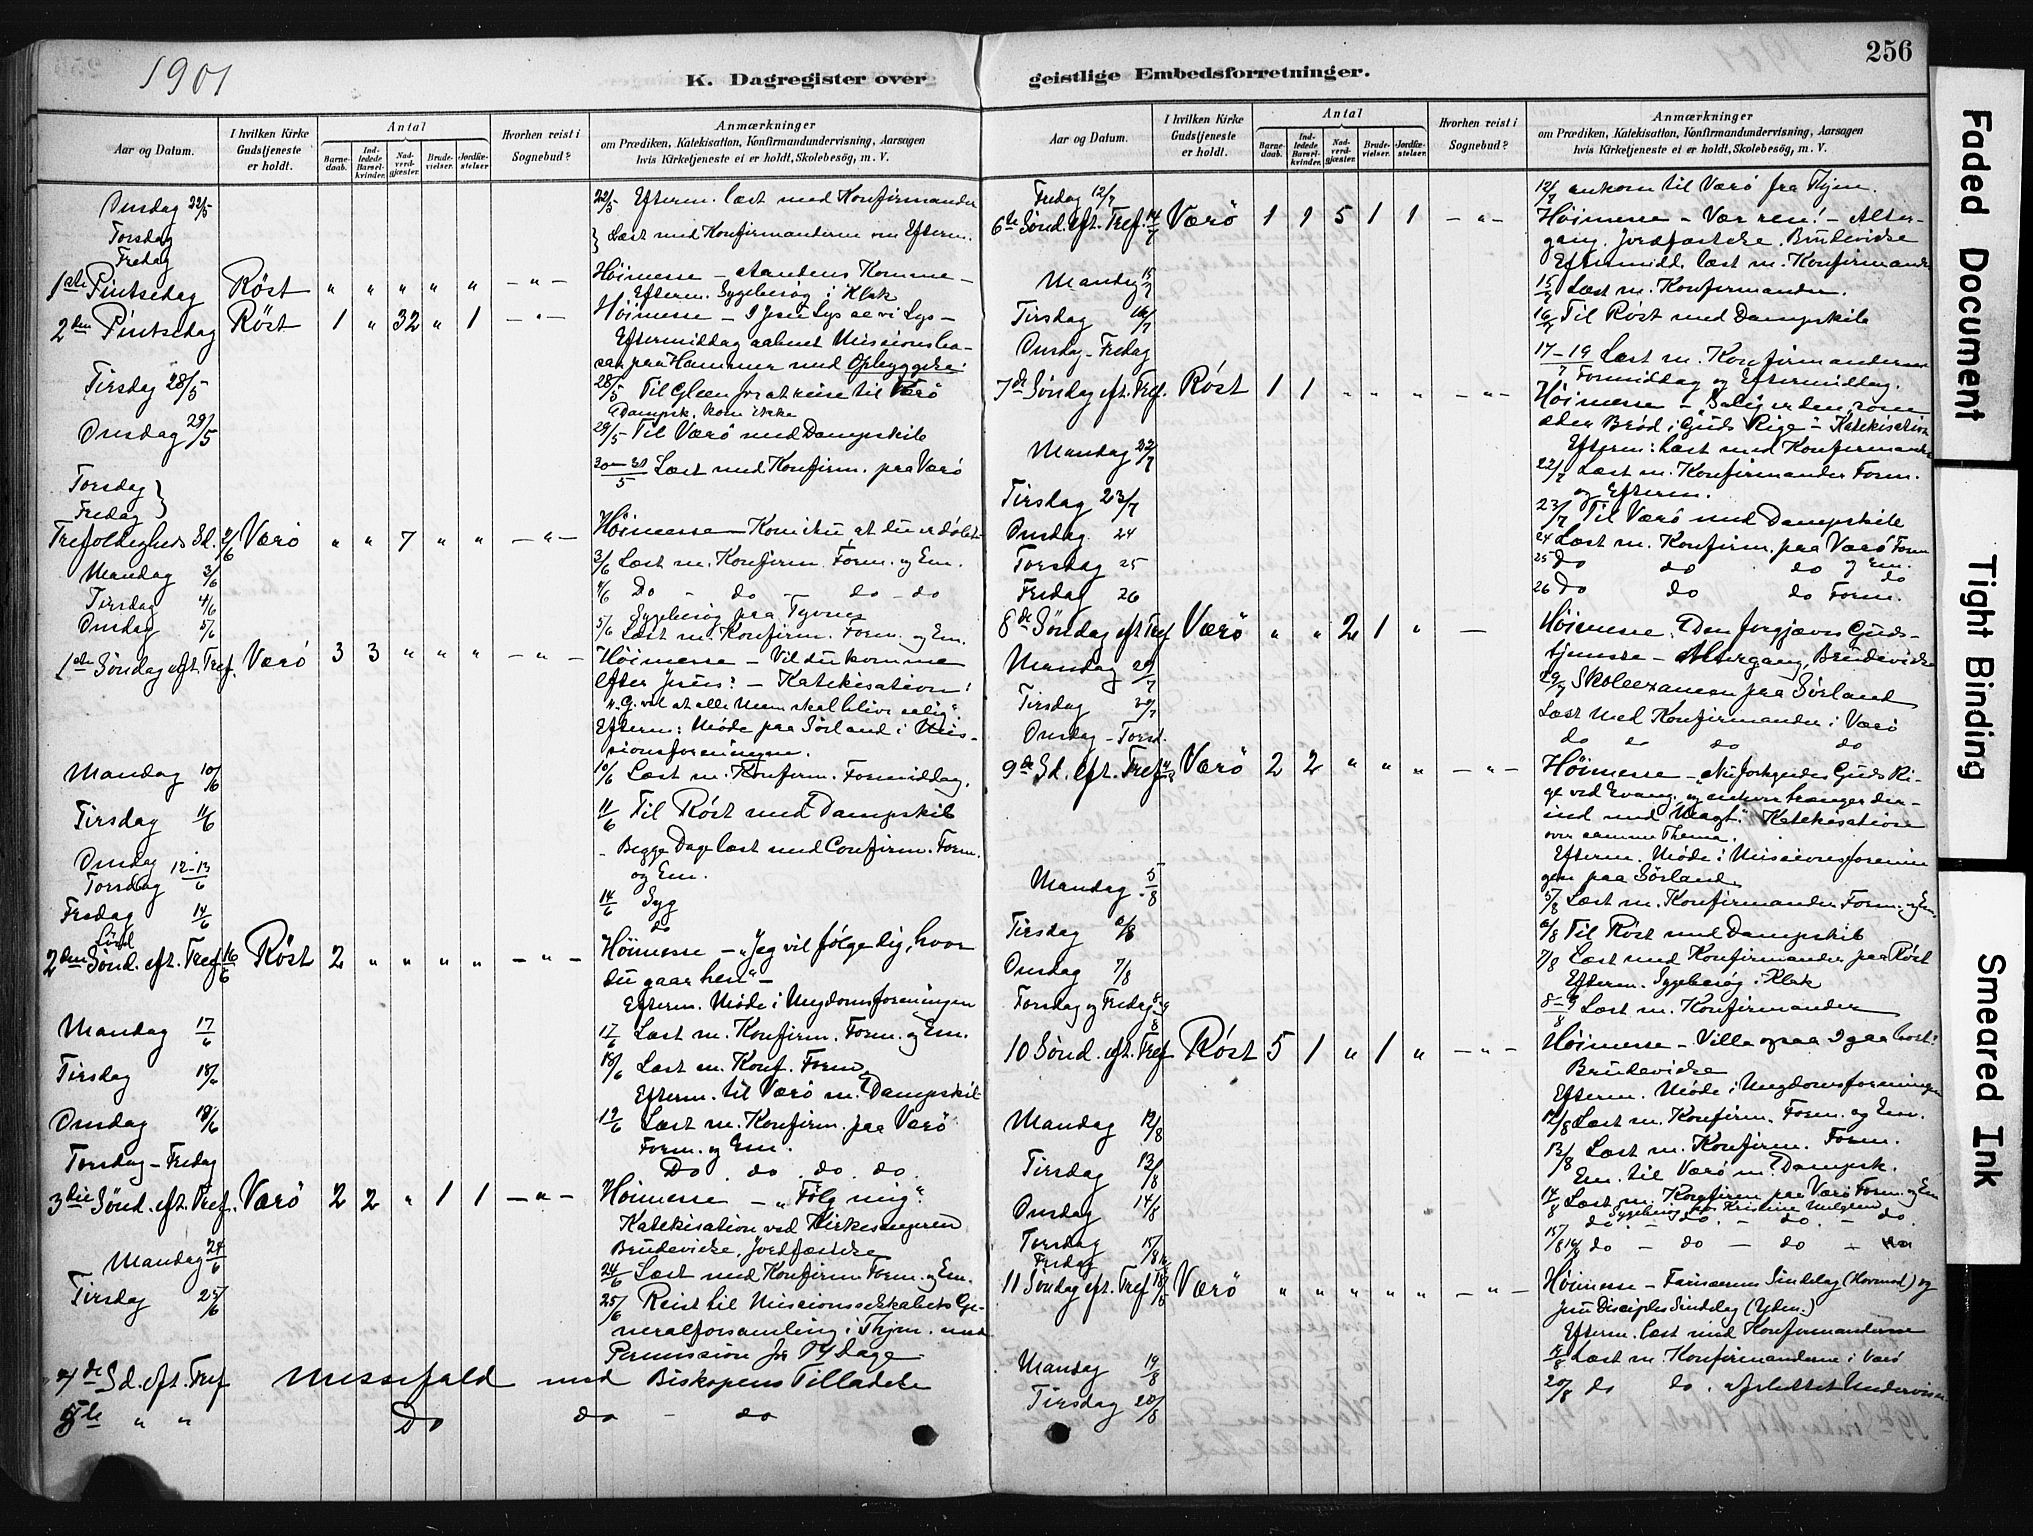 1901
K. Dagregister over
geistlige Embedsforretninger.
256
Aar og Datum.
I hvilken Kirke Gudstjeneste er holdt.
Antal
Barne-daab.
Ind-ledede Barsel-kvinder.
Nad-verd-gjæster.
Brude-vielser.
Jordfæ-stelser
Hvorhen reist i Sognebud?
Anmærkninger
om Prædiken, Katekisation, Konfirmandundervisning, Aarsagen
hvis Kirketjeneste ei er holdt, Skolebesøg, m. V.
Onsdag 22/5 22/5 Efterm. læst med Konfirmander
Torsdag } Læst med Konfirmanderne om Efterm.
Fredag
1ste Pintsedag Røst " " " " " - " - Høimesse - Aandens Komme -
Efterm. Sygebesøg i Klak
2den Pintsedag Røst 1 " 32 " 1 - " - Høimesse - I Jesu Lys se vi Lys -
Eftermiddag aabnet Missionsba-
sar paa Hammer med Opbyggelse
Tirsdag 28/5 28/5 Til Gleen for at reise til Værø
Dampsk. kom ikke
Onsdag 29/5 29/5 Til Værø med Dampskib
30-31/5 Læst med Konfirm. paa Værø
Torsdag }
Fredag
Trefoldigheds Sd. 2/6 Værø " " 7 " " - " - Høimesse - Kom ihu, at du er døbt
Mandag 3/6 3/6 Læst m. Konfirm. Form. og Em.
Tirsdag 4/6 4/6 Do - do - do - do
Sygebesøg paa Tyvnes
Onsdag 5/6 5/6 Læst m. Konfirm. Form. og Em.
1ste Søndag eft. Tref. Værø 3 3 " " " - " - Høimesse - Vil du komme
efter Jesus? - Katekisation:
"G. vil at alle Menn. skal blive salig"
Efterm: Møde paa Sørland i Mis-
sionsforeningen.
Mandag 10/6 10/6 Læst m. Konfirm. Formiddag.
Tirsdag 11/6 11/6 Til Røst med Dampskib
Onsdag 12-13/6 - Begge Dage læst med Confirm. Form.
Torsdag og Em.
Fredag 14/6 14/6 Syg
Lørd do
2den Sønd. eft. Tref 16/6 Røst 2 " " " " - " - Høimesse - "Jeg vil følge dig, hvor
du gaar hen" -
Efterm. Møde i Ungdomsforeningen
Mandag 17/6 17/6 Læst m. Konfirm. Form. og Em.
Tirsdag 18/6 18/6 Læst m. Konf. Form.
Efterm. til Værø m. Dampskib
Onsdag 19/6 19/6 Læst m. Konfirm. paa Værø
Form. og Em.
Torsdag - Fredag Do do do do
3die Sønd. eft. Tref. Værø 2 2 " 1 1 - " - Høimesse - "Følg mig".
Katekisation ved Kirkesangeren
Brudevielse, Jordfæstelse
Mandag 24/6 24/6 Læst med Konfirm. Form. og Em.
Tirsdag 25/6 25/6 Reist til Missionsselskabets Ge-
neralforsamling i Thjem. med
Permission for 14 Dage
4de Sd. eft. Tref Messefald med Biskopens Tilladelse
5te " " Do do - do
Aar og Datum.
I hvilken Kirke Gudstjeneste er holdt.
Antal
Barne-daab.
Ind-ledede Barsel-kvinder.
Nad-verd-gjæster.
Brude-vielser.
Jordfæ-stelser.
Hvorhen reist i Sognebud?
Anmærkninger
om Prædiken, Katekisation, Konfirmandundervisning, Aarsagen
hvis Kirketjeneste ei er holdt, Skolebesøg, m. V.
Fredag 12/7 12/7 ankom til Værø fra Thjem.
6te Sønd. eft. Tref. 14/7 Værø 1 1 5 1 1 - " - Høimesse - Vær ren! - Alter-
gang. Jordfæstelse. Brudevielse
Eftermidd. læst m. Konfirmander
Mandag 15/7 15/7 Læst m. Konfirmander.
Tirsdag 16/7 16/7 Til Røst med Dampskib
Onsdag - Fredag 17-19/7 Læst m. Konfirmanderne
Formiddag og Eftermiddag.
7de Søndag eft. Tref. Røst 1 1 " " " - " - Høimesse - "Salig er den, som
æder Brød i Guds Rige - Katekisation
Efterm: læst med Konfirmander
Mandag 22/7 22/7 Læst m. Konfirmander Form.
og Efterm.
Tirsdag 23/7 23/7 Til Værø med Dampskib
Onsdag 24 24 Læst m. Konfirm. paa Værø Form
og Em.
Torsdag 25 25 Do do do do
Fredag 26 26 Do do do Form.
8de Søndag eft. Tref Værø " " 2 1 " - Høimesse. Den forgjæves Guds-
tjeneste - Altergang, Brudevielse
Mandag 29/7 29/7 Skoleexamen paa Sørland
Tirsdag 30/7 Læst med Konfirmander i Værø
Onsdag - Torsd. do do do do
9de Sd. eft. Tref 4/8 Værø 2 2 " " " - " - Høimesse - "Nu forkyndes Guds Ri-
ge ved Evang. og enhver trænger der-
ind med Magt". Katekisation
over samme Thema.
Efterm. Møde i Missionsforenin
gen paa Sørland
Mandag 5/8 5/8 Læst m. Konfirmander Form. og Em.
Tirsdag 6/8 6/8 Til Røst med Dampskib
Onsdag 7/8 7/8 Læst med Konfirmander paa Røst
Efterm. Sygebesøg i Klak
Torsdag og Fredag 8-9/8 8-9/8 Læst m. Konfirmander
10 Sønd. eft. Tref Røst 5 1 " 1 " - " - Høimesse - Ville ogsaa I gaa bort?
Brudevielse
Efterm. Møde i Ungdomsforeningen
Mandag 12/8 12/8 Læst m. Konfirm. Form. og Em.
Tirsdag 13/8 13/8 Læst m. Konfirm. Form.
Em. til Værø m. Dampsk.
Onsdag 14/8 14/8 Læst m. Konfirm paa Værø Form. og Em
Sygebesøg hos Kristine
Torsdag 15/8 do - do - do - do.
Fredag 16/8 15/8 16/8 do - do - do
11 Søndag eft. Tref 18/8 Værø " " " " " - " - Høimesse - Farisæernes Sindelag (Hovmod) og
Jesu Disciples Sindelag (Ydm.)
Efterm. læst med Konfirmanderne
Mandag 19/8 19/8 Læst m. Konfirmanderne i Værø
Tirsdag 20/8 20/8 do do. afsluttet Undervisn.
Faded Document
Tight Binding
Smeared Ink